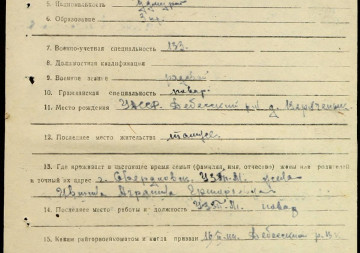 5. Национальность удмурт
6. Образование 3 кл.
7. Военно-учетная специальность 133
8. Должностная квалификация
9. Военное звание рядовой
10. Гражданская специальность повар
11. Место рождения УАССР Дебесский р-н д.
12. Последнее место жительства
13. Где проживает в настоящее время семья (фамилия, имя, отчество) жены или родителей
и точный их адрес г. Свердловск, УЗТМ. жена
14. Последнее место работы и должность УЗТМ. повар
15. Каким райгорвоенкоматом и когда призван Дебесским р.в.к.